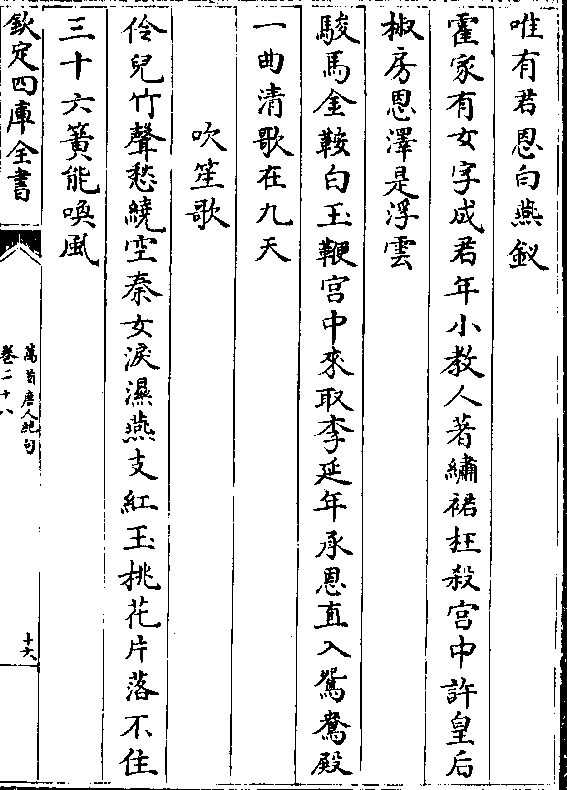 唯有君恩白燕釵
霍家有女字成君年小教人著繡裙枉殺宮中許皇后
椒房恩澤是浮雲
駿馬金鞍白玉鞭宮中來取李延年承恩直入鴛鴦殿
一曲清歌在九天
吹笙歌
伶兒竹聲愁繞空秦女淚濕燕支紅玉桃花片落不住
三十六簧能喚風
欽定四庫全書
萬首唐人絶句
卷二十八
十六